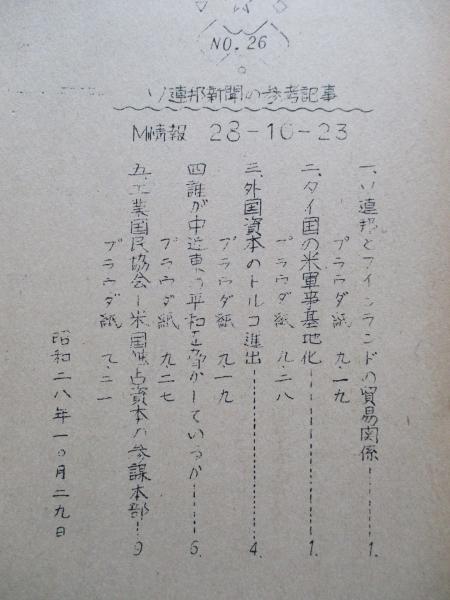 NO. 26
ソ連邦新聞の参考記事
M情報 28-10-23
一、ソ連邦とフインランドの貿易関係 1.
プラウダ紙 九.一九
二、タイ国の米軍事基地化 1.
プラウダ紙 九.二八
三、外国資本のトルコ進出 4.
プラウダ紙 九.一九
四、誰が中近東の平和を脅かしているか 6.
プラウダ紙 九.二七
五、工業国民協会―米国独占資本の参謀本部 9
プラウダ紙
昭和二八年一〇月二九日